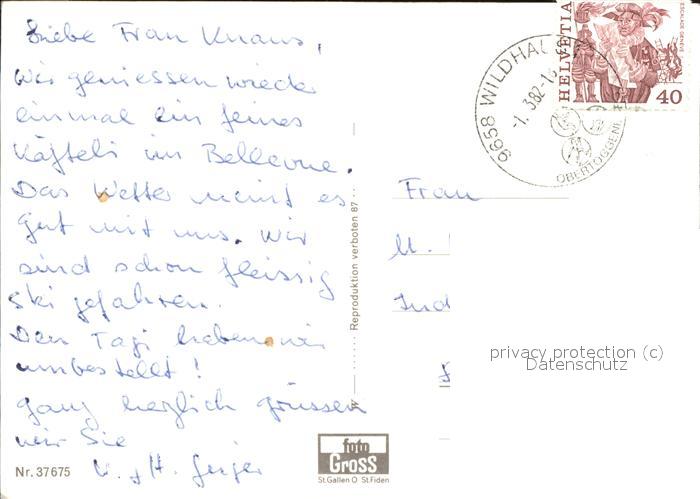 Liebe Frau Knaus,
Wir geniessen wieder
einmal ein feines
Käfteli im Bellevue.
Das Wetter meint es
gut mit uns. Wir
sind schon fleissig
Ski gefahren.
Den Tagi haben wir
umbestellt!
ganz herzlich grüssen
wir Sie
H. Geiger
Nr. 37675
Reproduktion verboten 87
foto
GROSS
St.Gallen O St.Fiden
Frau
M.
Ind
9658 WILDHAU
-1. 3.82-16
OBERTOGGEN
HELVETIA
ESCALADE GENÈVE
40
privacy protection (c)
Datenschutz